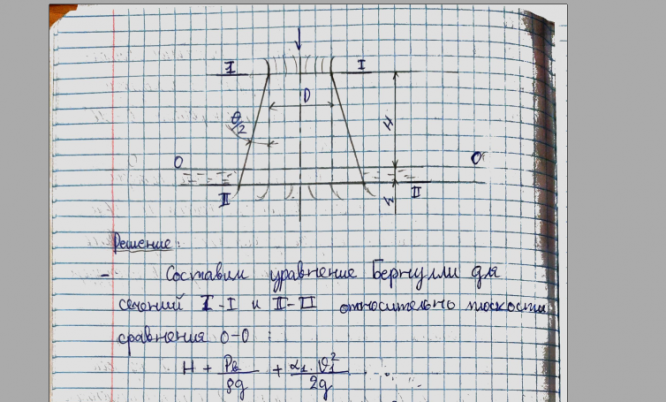 I I
D
θ/2
H
O O
II II
h
Решение:
- Составим уравнение Бернулли для
сечений I-I и II-II относительно плоскости
сравнения 0-0 :
H + Pв/ρg + α₁·ϑ₁²/2g